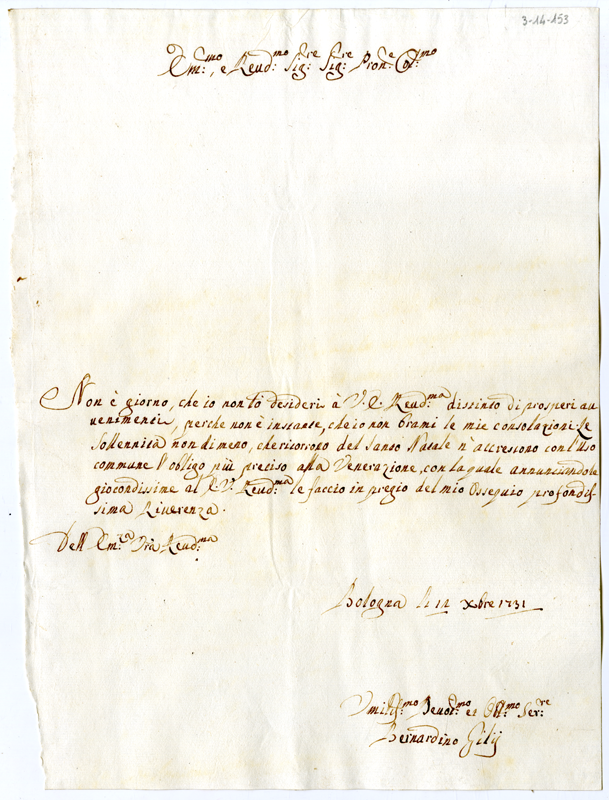 3-14-153
Em:mo, e Reud:mo Sig:re Sig:re Pron:e Col:mo
Non è giorno, che io non lo desideri à V.E. Reud:ma distinto di prosperi au
uenimenti, perche non è instante, che io non brami le mie consolazioni. Le
Sollennità non di meno, che ricorrono del Santo Natale n'accrescono con l'uso
commune l'obligo più preciso alla Venerazione, con la quale annunciandole
giocondissime al E.V. Reud:ma le faccio in pregio del mio Ossequio profondis
sima Riuerenza.
Dell Em:za Vrã Reud:ma
Bologna li 12 Xbre 1731
Umiliss:mo Deuot:mo et Obl:mo Ser:re
Bernardino Gilij